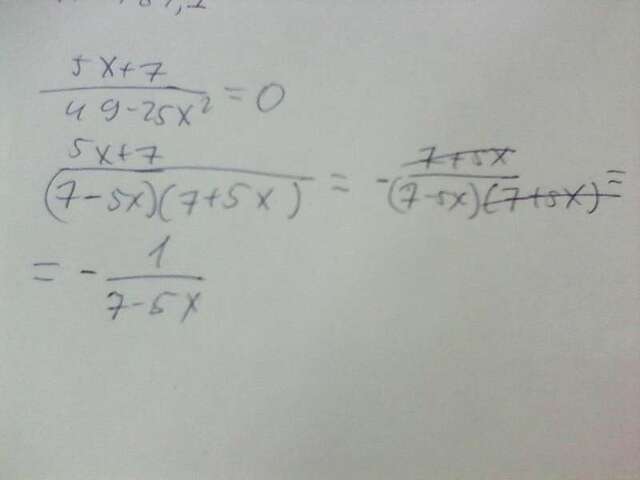 5x+7/49-25x² = 0
5x+7/(7-5x)(7+5x) = -7+5x/(7-5x)(7+5x) =
= -1/7-5x